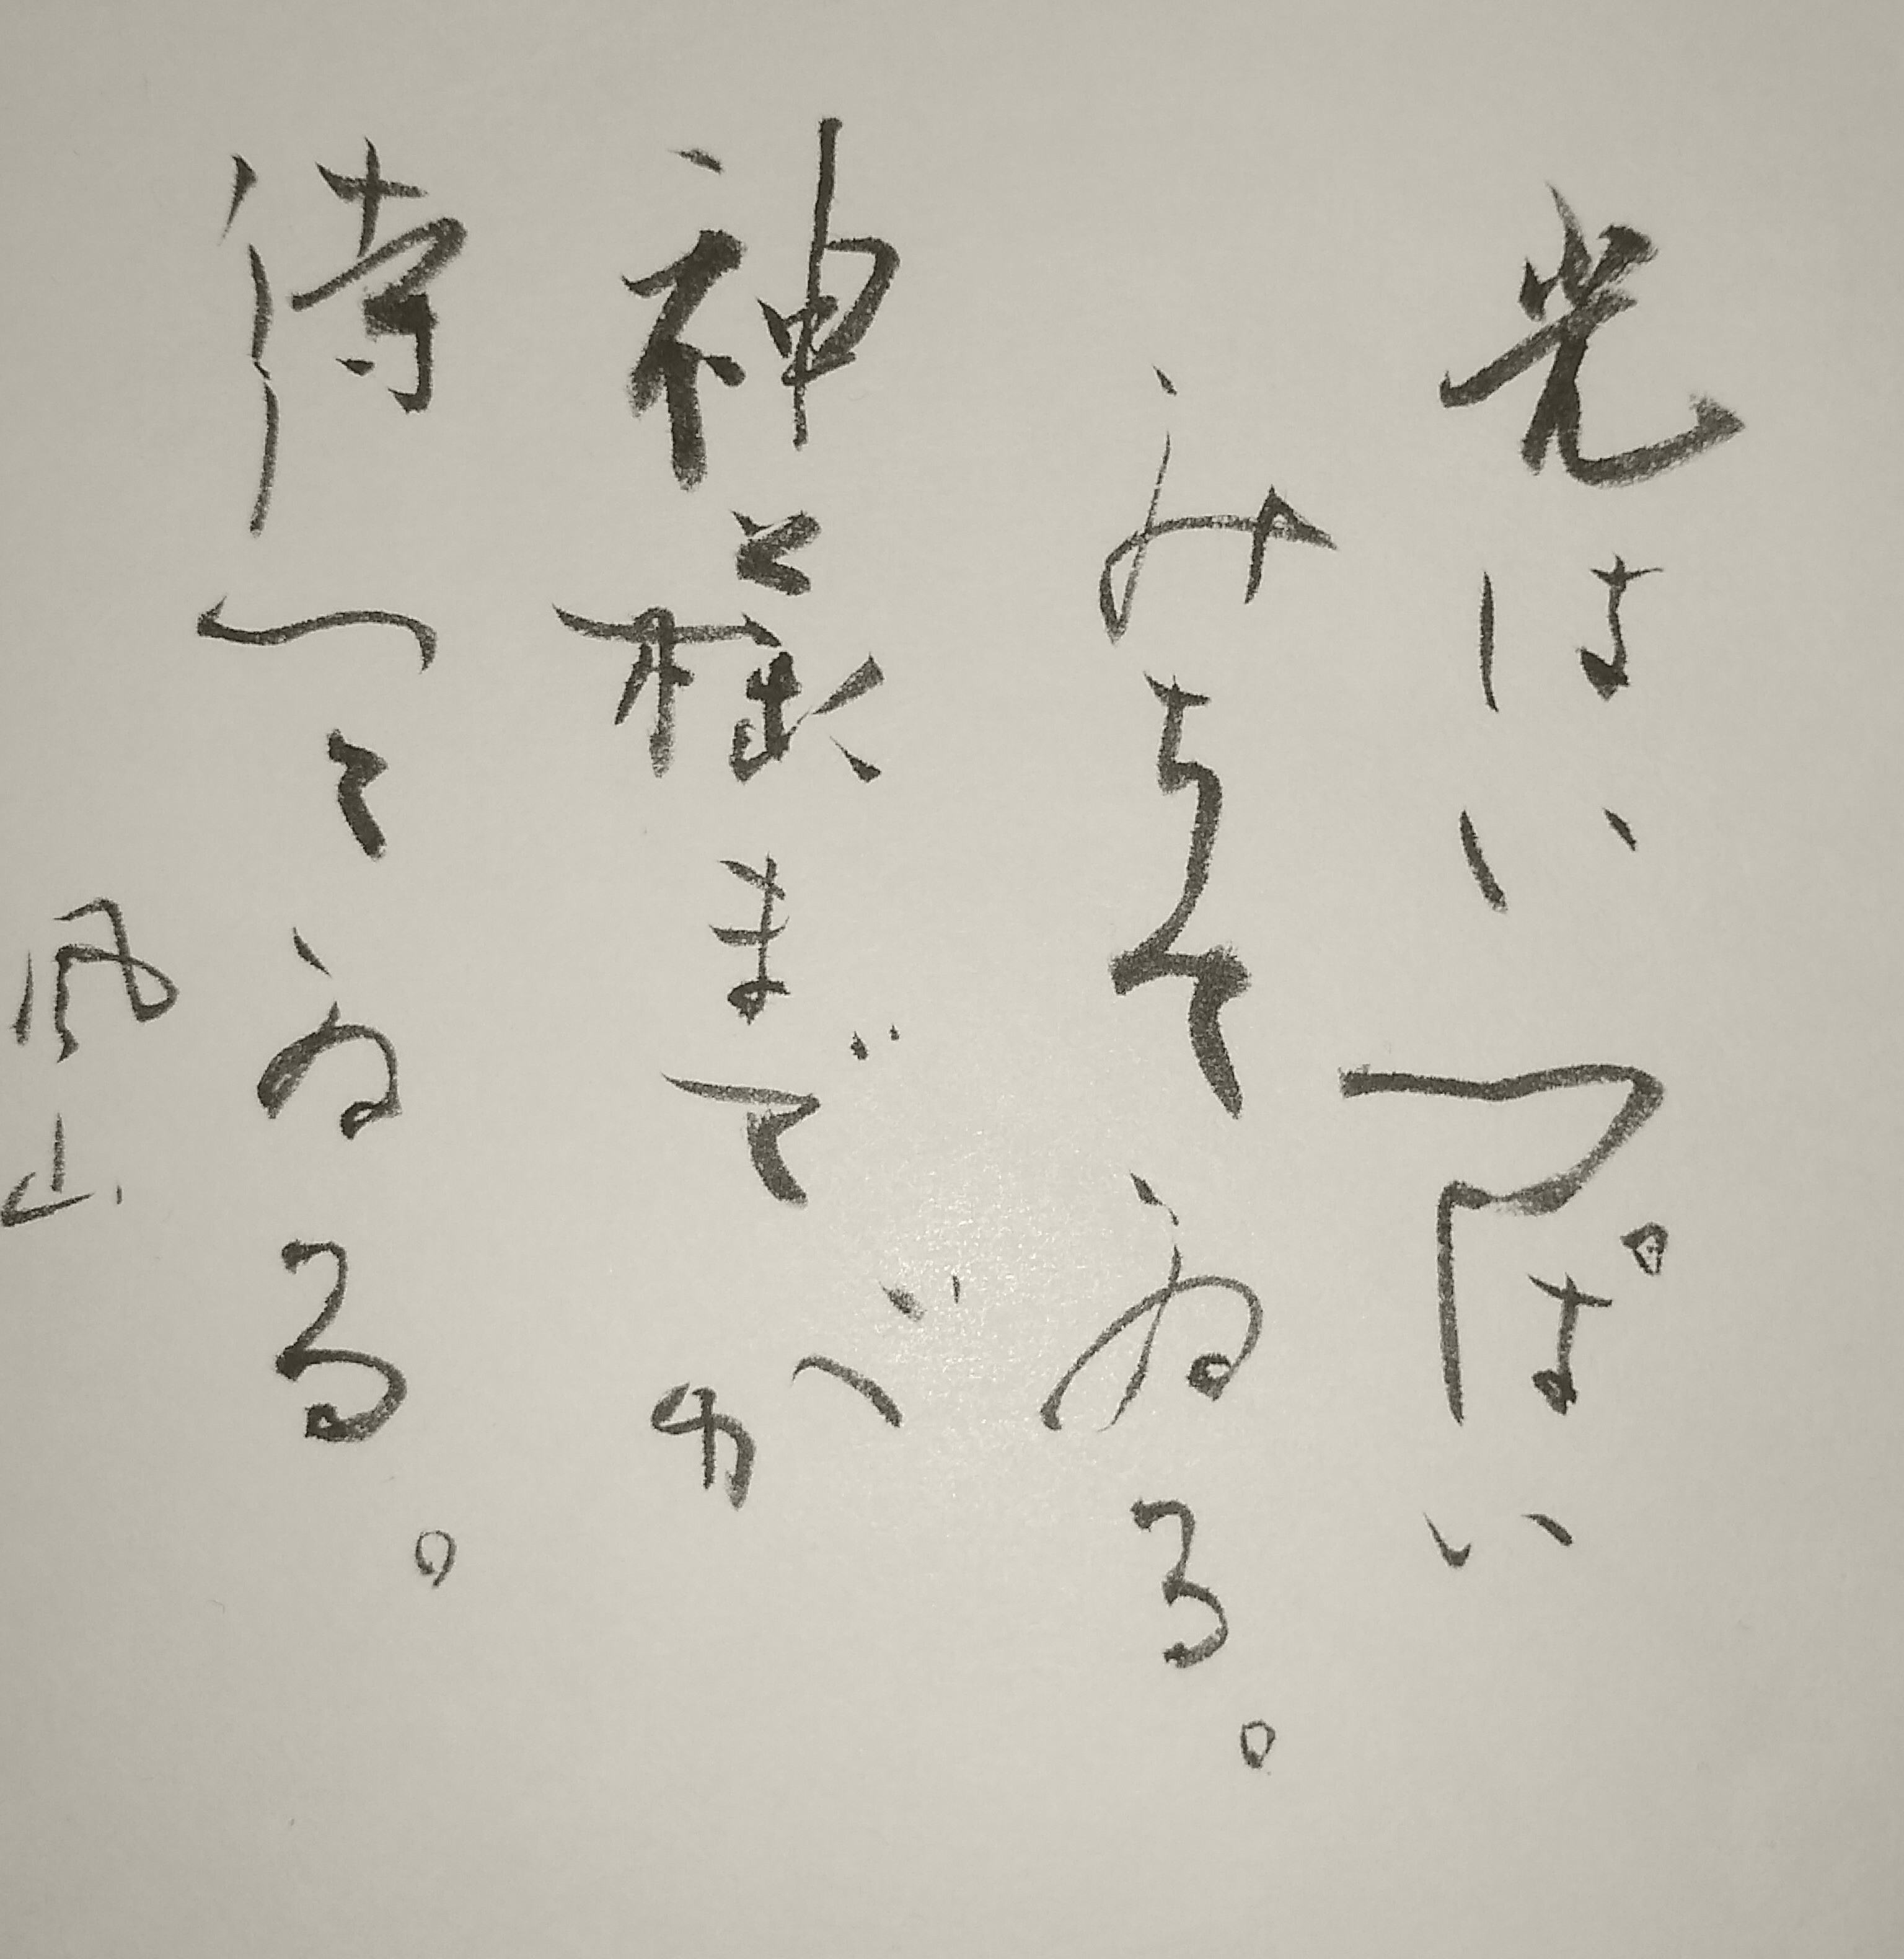 光はいつぱい
みちてゐる。
神様までが
待つてゐる。
風山